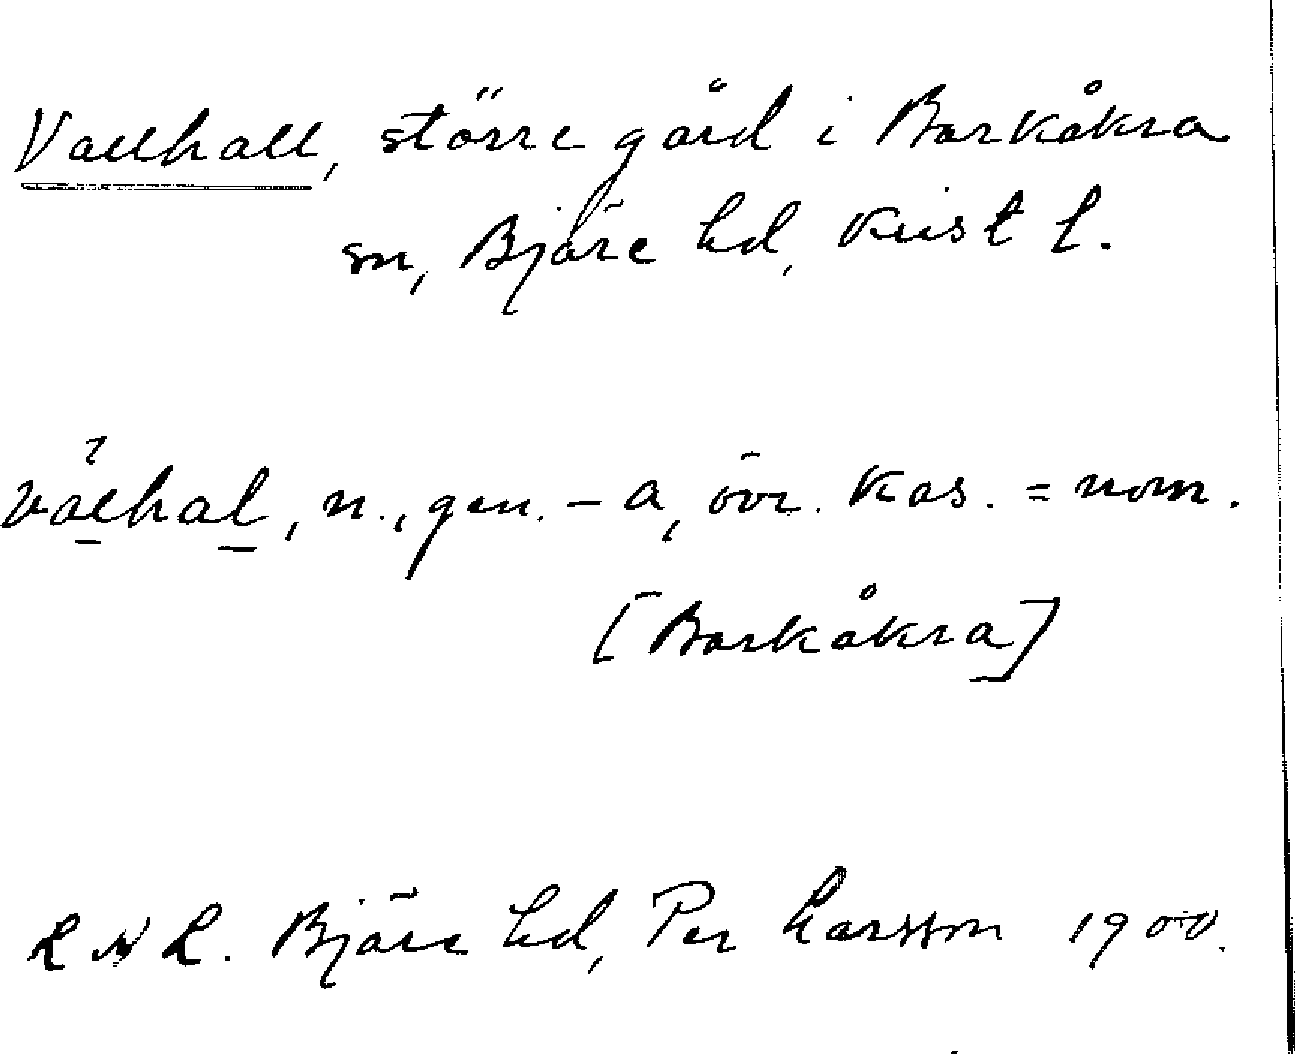 Vallhall, större gård i Barkåkra
sn, Bjäre hd, Krist l.
valhal, n., gen. – a, övr. kas. = nom.
[Barkåkra]
Bjäre hd, Per Larsson 1900.